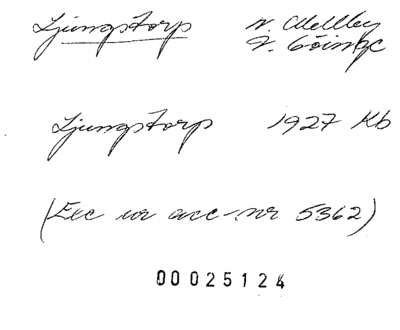 Ljungstorp N. Mellby
V. Göinge
Ljungstorp 1927 Kb
(Exc ur acc-nr 5362)
00025124